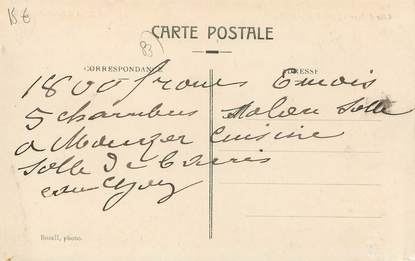 15€
83
CARTE POSTALE
CORRESPONDANCE
ADRESSE
1800 frous 2 mois
5 chambres salon salle
a Manger Cuisine
salle de bains
eau
Bozell, photo.